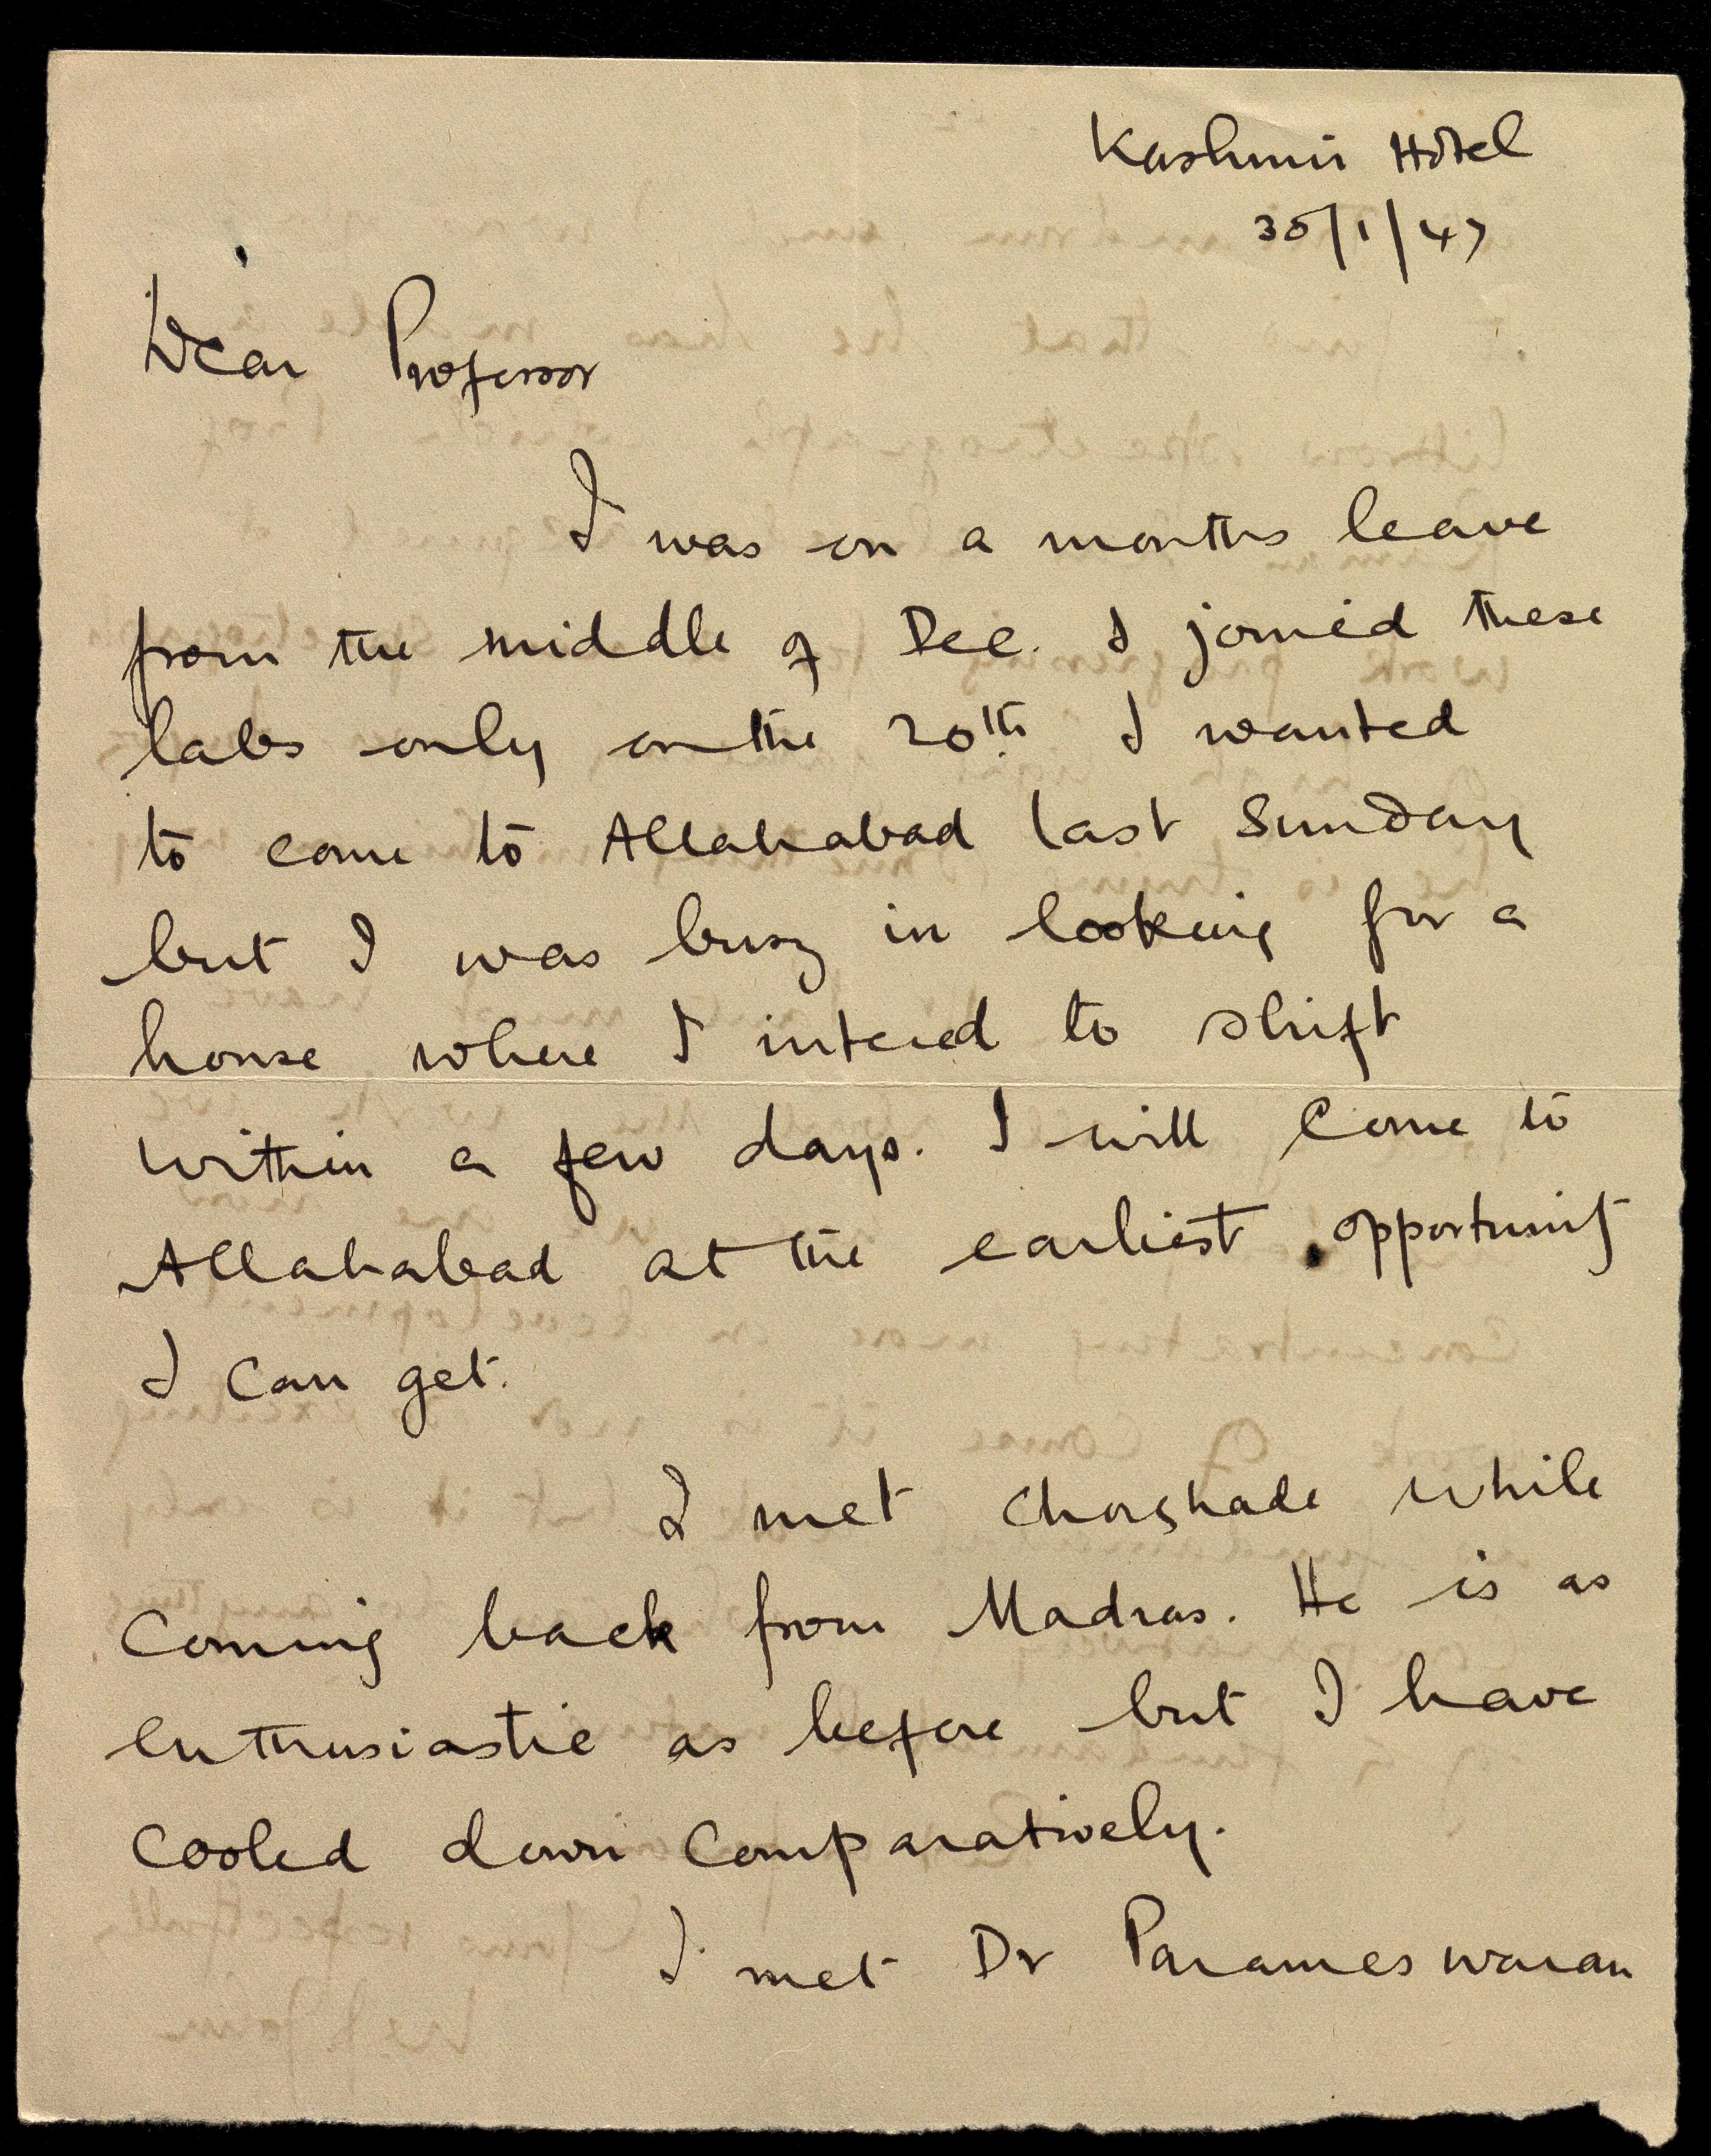 Kashmir Hotel
30/1/47
Dear Professor
I was on a months leave
from the middle of Dec. I joined these
labs only on the 20th. I wanted
to come to Allahabad last Sunday
but I was busy in looking for a
house where I intend to shift
within a few days. I will come to
Allahabad at the earliest opportunity
I can get.
I met Chorghade while
coming back from Madras. He is as
enthusiastic as before but I have
cooled down comparatively.
I met Dr Parameswaran